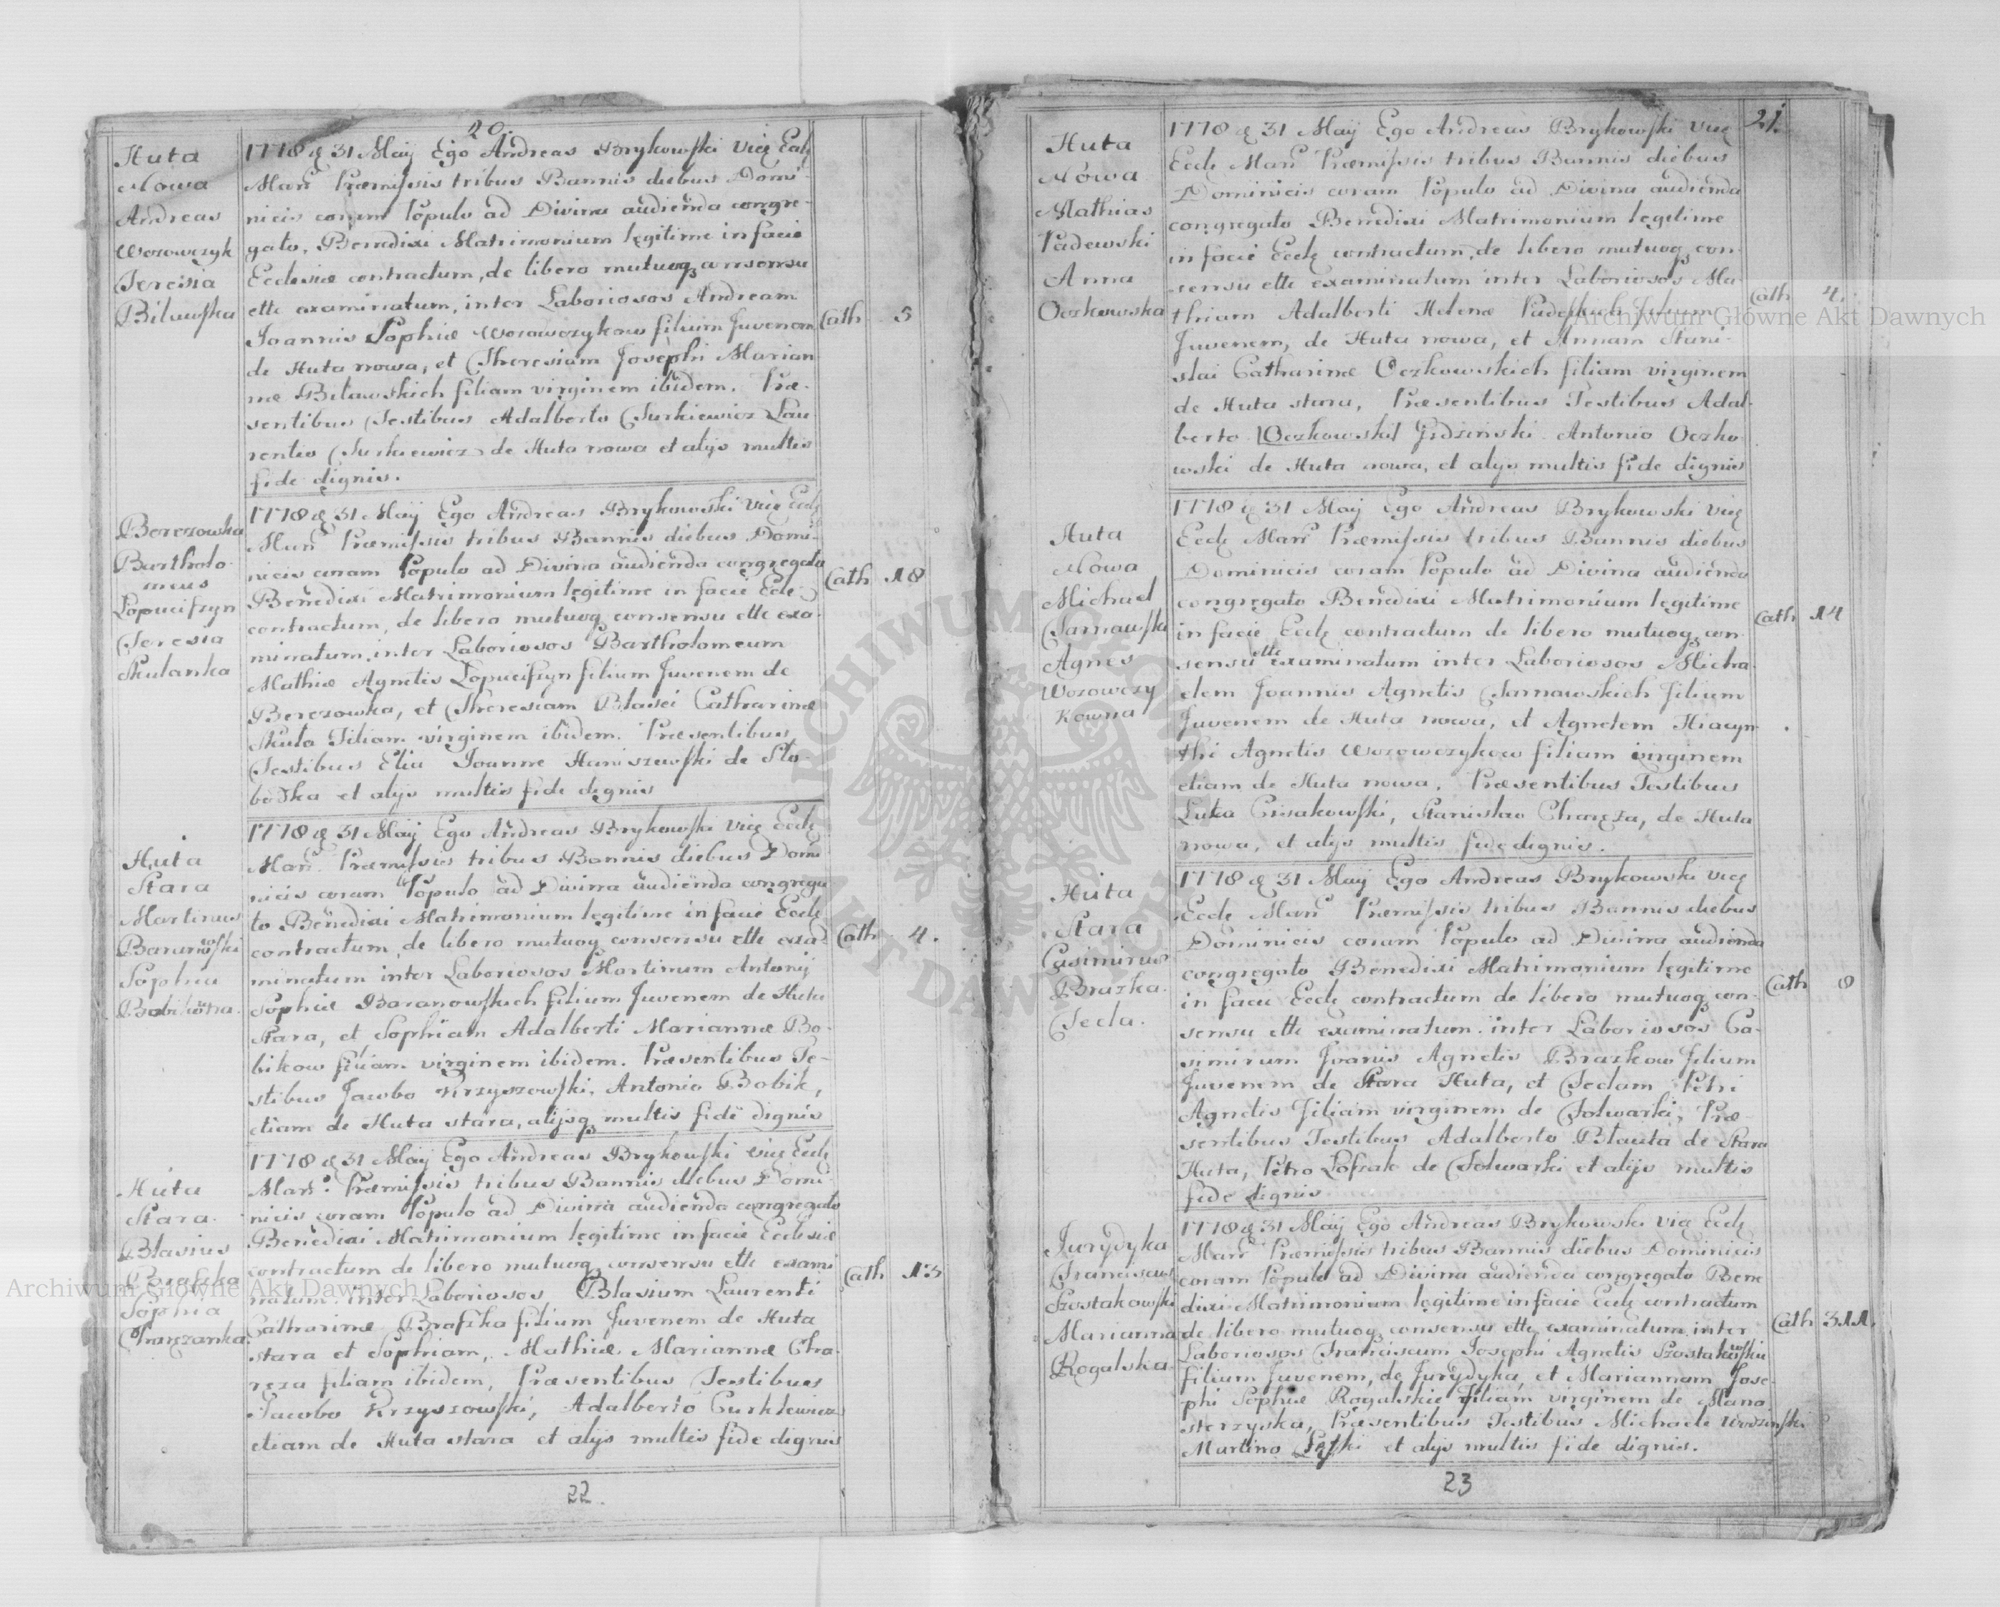 20.
Huta
Nowa
Andreas
Worowczyk
Teresia
Bilawska
1778 d 31 Maij Ego Andreas Brykowski Vice Eccl
Mari Præmissis tribus Bannis diebus Domi-
nicis coram Populo ad Divina audienda congre-
gato, Benedixi Matrimonium legitime in facie
Ecclesiæ contractum, de libero mutuoq consensu
ette examinatum, inter Laboriosos Andream
Joannis Sophiæ Worowczykow filium Juvenem
de Huta nowa, et Theresiam Josephi Marian
næ Bilawskich filiam virginem ibidem. Præ-
sentibus Testibus Adalberto Turkiewicz Lau-
rentio Turkiewicz de Huta nowa et alijs multis
fide dignis.
Cath 5
Berezowka
Bartholo-
meus
Lopuciszyn
Teresia
Skulanka
1778 d 31 Maij Ego Andreas Brykowski Vice Eccl
Mari Præmissis tribus Bannis diebus Domi-
nicis coram Populo ad Divina audienda congregato
Benedixi Matrimonium legitime in facie Eccl
contractum, de libero mutuoq consensu ette exa-
minatum, inter Laboriosos Bartholomeum
Mathiæ Agnetis Lopuciszyn filium Juvenem de
Berezowka, et Theresiam Blasei Catharinæ
Skula Filiam virginem ibidem. Præsentibus
Testibus Elia Joanne Huniszewski de Slo-
bodka et alijs multis fide dignis
Cath 18
Huta
Stara
Martinus
Baranowski
Sophia
Bobikowna.
1778 d 31 Maij Ego Andreas Brykowski Vice Eccl
Mari Præmissis tribus Bannis diebus Domi
nicis coram Populo ad Divina audienda congrega
to Benedixi Matrimonium legitime in facie Eccl
contractum, de libero mutuoq consensu ette exa-
minatum inter Laboriosos Martinum Antonij
Sophiæ Baranowskich filium Juvenem de Huta
Stara, et Sophiam Adalberti Mariannæ Bo-
bikow filiam virginem ibidem. Præsentibus Te-
stibus Jacobo Krzyszowski, Antonio Bobik,
etiam de Huta stara, alijsq multis fide dignis
Cath 4.
Huta
Stara.
Blasius
Brafzka
Sophia
Charęzanka
1778 d 31 Maij Ego Andreas Brykowski Vice Eccl
Mari. Præmissis tribus Bannis diebus Domi
nicis coram Populo ad Divina audienda congregato
Benedixi Matrimonium legitime in facie Ecclesiæ
contractum de libero mutuoq consensu ette exami
natum inter Laboriosos, Blasium Laurenti
Catharinæ Brafzka filium Juvenem de Huta
stara et Sophiam, Mathiæ Mariannæ Cha-
reza filiam ibidem, Præsentibus Testibus
Jacobo Krzyszowski, Adalberto Curkiewicz
etiam de Huta stara et alijs multis fide dignis
Cath 13
22.
21.
Huta
Nowa
Mathias
Padewski
Anna
Oczkowska
1778 d 31 Maij Ego Andreas Brykowski Vice
Eccl Mari Præmissis tribus Bannis diebus
Dominicis coram Populo ad Divina audienda
congregato Benedixi Matrimonium legitime
in facie Eccl contractum, de libero mutuoq con-
sensu ette examinatum inter Laboriosos Ma-
thiam Adalberti Helenæ Padeskich filium
Juvenem, de Huta nowa, et Annam Stani-
slai Catharinæ Oczkowskich filiam virginem
de Huta stara, Præsentibus Testibus Adal-
berto Oczkowski Jrdziński Antonio Oczko
wski de Huta nowa, et alijs multis fide dignis
Cath 4.
Huta
Nowa
Michael
Tarnawski
Agnes
Worowczy
kowna
1778 d 31 Maij Ego Andreas Brykowski Vice
Eccl Mari Præmissis tribus Bannis diebus
Dominicis coram Populo ad Divina audienda
congregato Benedixi Matrimonium legitime
in facie Eccl contractum de libero mutuoq con-
sensu ette examinatum inter Laboriosos Micha-
elem Joannis Agnetis Tarnawskich filium
Juvenem de Huta nowa, et Agnetem Hiacyn
thi Agnetis Worowczykow filiam virginem
etiam de Huta nowa, Præsentibus Testibus
Luka Crisakowski, Stanislao Charęza, de Huta
nowa, et alijs multis fide dignis.
Cath 14
Huta
Stara
Casimirus
Brazka.
Tecla.
1778 d 31 Maij Ego Andreas Brykowski Vice
Eccl Mari Præmissis tribus Bannis diebus
Dominicis coram Populo ad Divina audienda
congregato Benedixi Matrimonium legitime
in facie Eccl contractum de libero mutuoq con-
sensu ette examinatum inter Laboriosos Ca-
simirum Joanis Agnetis Brazkow filium
Juvenem de Stara Huta, et Teclam Petri
Agnetis Filiam virginem de Folwarki, Præ-
sentibus Testibus Adalberto Blauta de Stara
Huta, Petro Lofzak de Folwarki et alijs multis
fide dignis
Cath 8
Jurydyka
Franciscus
Szostakowski
Marianna
Rogalska.
1778 d 31 Maij Ego Andreas Brykowski Vice Eccl
Mari Præmissis tribus Bannis diebus Dominicis
coram Populo ad Divina audienda congregato Bene
dixi Matrimonium legitime in facie Eccl contractum
de libero mutuoq consensu ette examinatum inter
Laboriosos Franciscum Josephi Agnetis Szostakowskie
filium Juvenem, de Jurydyka, et Mariannam Jose-
phi Sophiæ Rogalskie Filiam virginem de Mana
sterzyska, Præsentibus Testibus Michaele Wodzinski
Martino Lęski et alijs multis fide dignis.
Cath 311.
23
Archiwum Główne Akt Dawnych
Archiwum Główne Akt Dawnych
ARCHIWUM GŁÓWNE AKT DAWNYCH